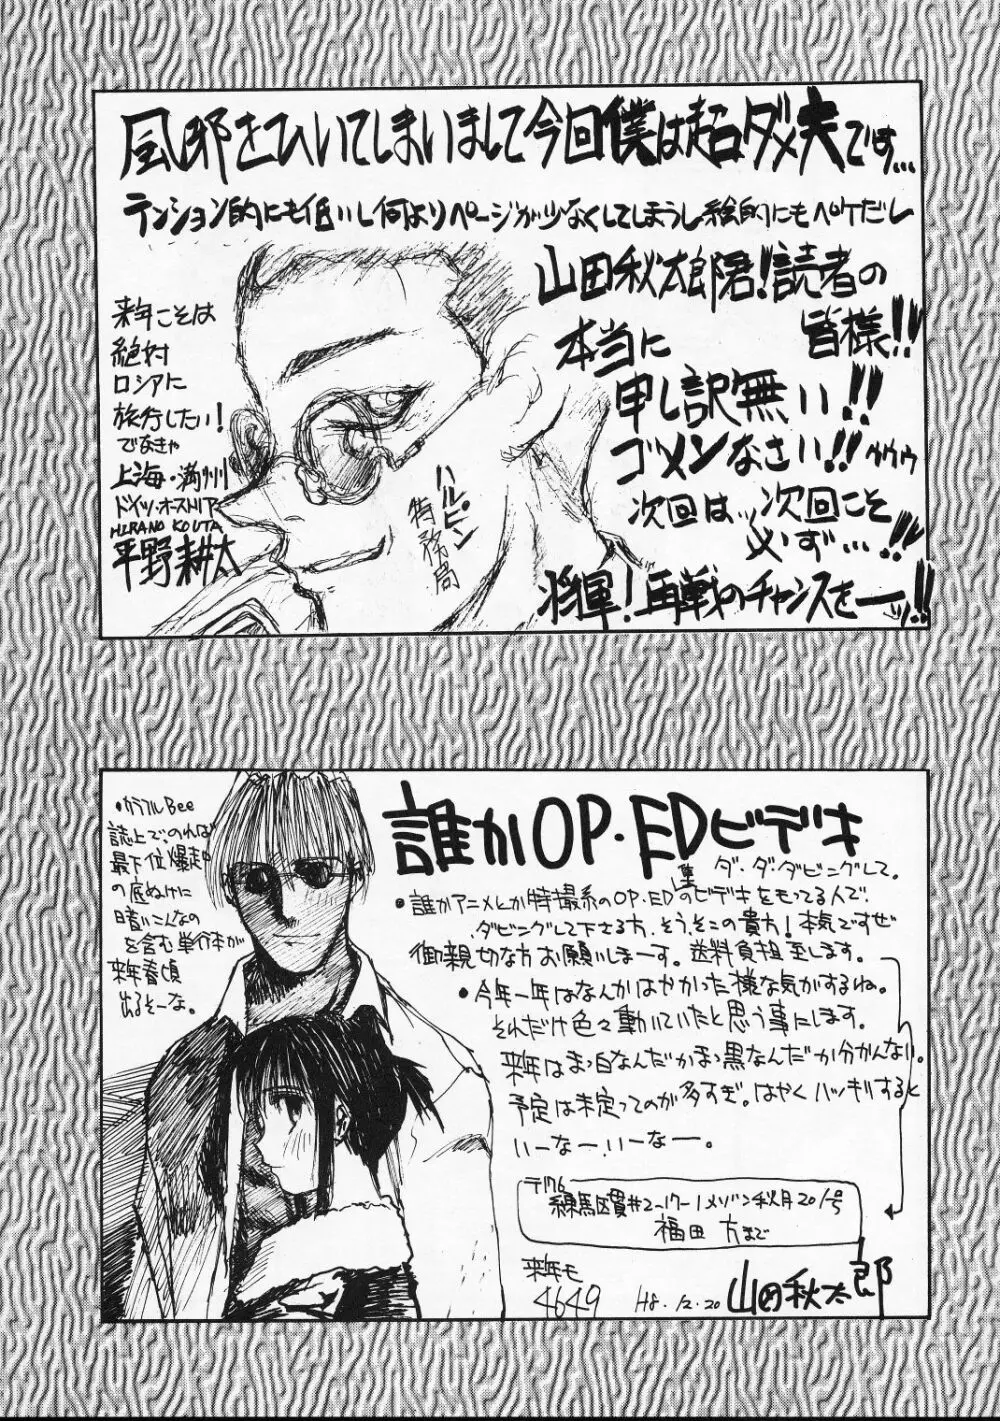 風邪をひいてしまいまして今回僕は超ダメ夫です…
テンション的にも低いし何よりページが少なくしてしまうし絵的にもペケだし
山田秋太郎君!読者の
皆様!!
本当に
申し訳無い!!
ゴメンなさい!!ウウウ
次回は…次回こそ
必ず…!!
将軍!再戦のチャンスをーッ!!
来年こそは
絶対
ロシアに
旅行したい!
できゃ
上海・満州
ドイツ・オーストリア
HIRANO KOUTA
平野耕太
ハルピン
特務局
誰かOP・EDビデキ
ダ・ダ・ダビングして。
・誰かアニメとか特撮系のOP・ED集のビデキをもってる人で
ダビングして下さる方、そうそこの貴方!本気ですぜ
御親切な方お願いしまーす。送料負担至します。
・今年一年はなんかはやかった様な気がするね。
それだけ色々動いていたと思う事にします。
来年はまっ白なんだかまっ黒なんだか分かんない。
予定は未定ってのが多すぎ。はやくハッキリすると
いーなーいーなー。
〒176
練馬区貫井2-17-1メゾン秋月201号
福田方まで
来年も
4649
H8.12.20
山田秋太郎
・カラフルBee
誌上で、のれば
最下位爆走中
の底ぬけに
暗いこんなの
を含む単行本が
来年春頃
出るそーな。